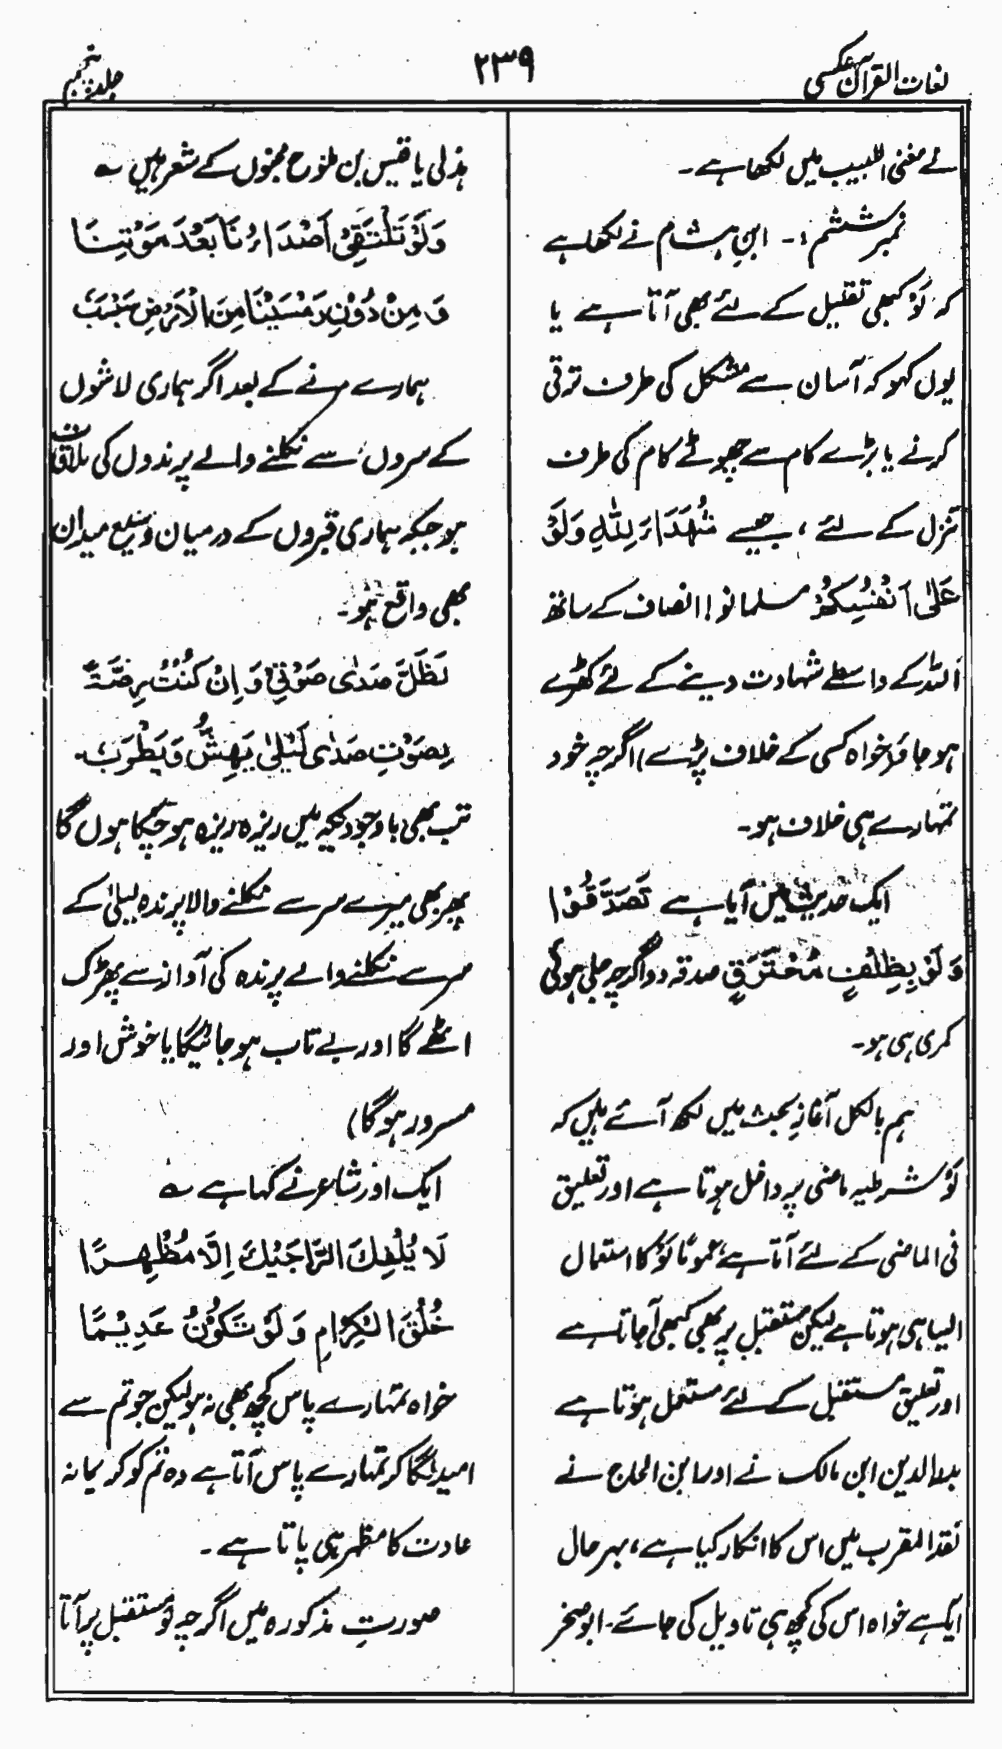 لغات القرآن عکسی
۲۳۹
جلد پنجم
نے مغنی اللبیب میں لکھا ہے۔
نمبر ششم :۔ ابنِ ہشام نے لکھا ہے
کہ لَوْ کبھی تقلیل کے لئے بھی آتا ہے یا
یوں کہو کہ آسان سے مشکل کی طرف ترقی
کرنے یا بڑے کام سے چھوٹے کام کی طرف
تنزل کے لئے ، جیسے شُهَدَاءَ لِلّٰهِ وَلَوْ
عَلٰی اَنْفُسِكُمْ مسلمانو! انصاف کے ساتھ
اللہ کے واسطے شہادت دینے کے لئے کھڑے
ہو جاؤ (خواہ کسی کے خلاف پڑے) اگرچہ خود
تمہارے ہی خلاف ہو۔
ایک حدیث میں آیا ہے تَصَدَّقُوْا
وَلَوْ بِظِلْفٍ مُحْتَرَقٍ صدقہ دو اگرچہ جلی ہوئی
کھری ہی ہو۔
ہم بالکل آغازِ بحث میں لکھ آئے ہیں کہ
لَوْ شرطیہ ماضی پر داخل ہوتا ہے اور تعلیق
فی الماضی کے لئے آتا ہے، عمومًا لَوْ کا استعمال
ایسا ہی ہوتا ہے لیکن مستقبل پر بھی کبھی آجاتا ہے
اور تعلیق مستقبل کے لئے مستعمل ہوتا ہے
بدرالدین ابن مالک نے اور ابن الحاج نے
نقد المقرب میں اس کا انکار کیا ہے، بہر حال
ایک ہے خواہ اس کی کچھ ہی تاویل کی جائے۔ ابو صخر
ہذلی یا قیس بن ملوح مجنوں کے شعر ہیں ؎
وَلَوْ تَلْتَقِیْ اَصْدَاءُنَا بَعْدَ مَوْتِنَا
وَ مِنْ دُوْنِ رَمْسَیْنَا مِنَ الْاَرْضِ سَبْسَبُ
ہمارے مرنے کے بعد اگر ہماری لاشوں
کے سروں سے نکلنے والے پرندوں کی ملاقات
ہو جبکہ ہماری قبروں کے درمیان وسیع میدان
بھی واقع ہو۔
لَظَلَّ صَدٰی صَوْتِیْ وَ اِنْ كُنْتُ رِمَّةً
بِصَوْتِ صَدٰی لَیْلٰی یَهِشُّ وَ یَطْرَبُ۔
تب بھی باوجودیکہ میں ریزہ ریزہ ہو چکا ہوں گا
پھر بھی میرے سر سے نکلنے والا پرندہ لیلیٰ کے
سر سے نکلنے والے پرندہ کی آواز سے پھڑک
اٹھے گا اور بے تاب ہو جائیگا یا خوش اور
مسرور ہوگا)
ایک اور شاعر نے کہا ہے ؎
لَا یُلْفِكَ الرَّاجَیْكَ اِلَّا مُظْهِرًا
خُلُقَ الْكِرَامِ وَلَوْ تَكُوْنُ عَدِیْمًا
خواہ تمہارے پاس کچھ بھی نہ ہو لیکن جو تم سے
امید لگا کر تمہارے پاس آتا ہے وہ تم کو کریمانہ
عادت کا مظہر ہی پاتا ہے۔
صورتِ مذکورہ میں اگرچہ لَوْ مستقبل پر آتا